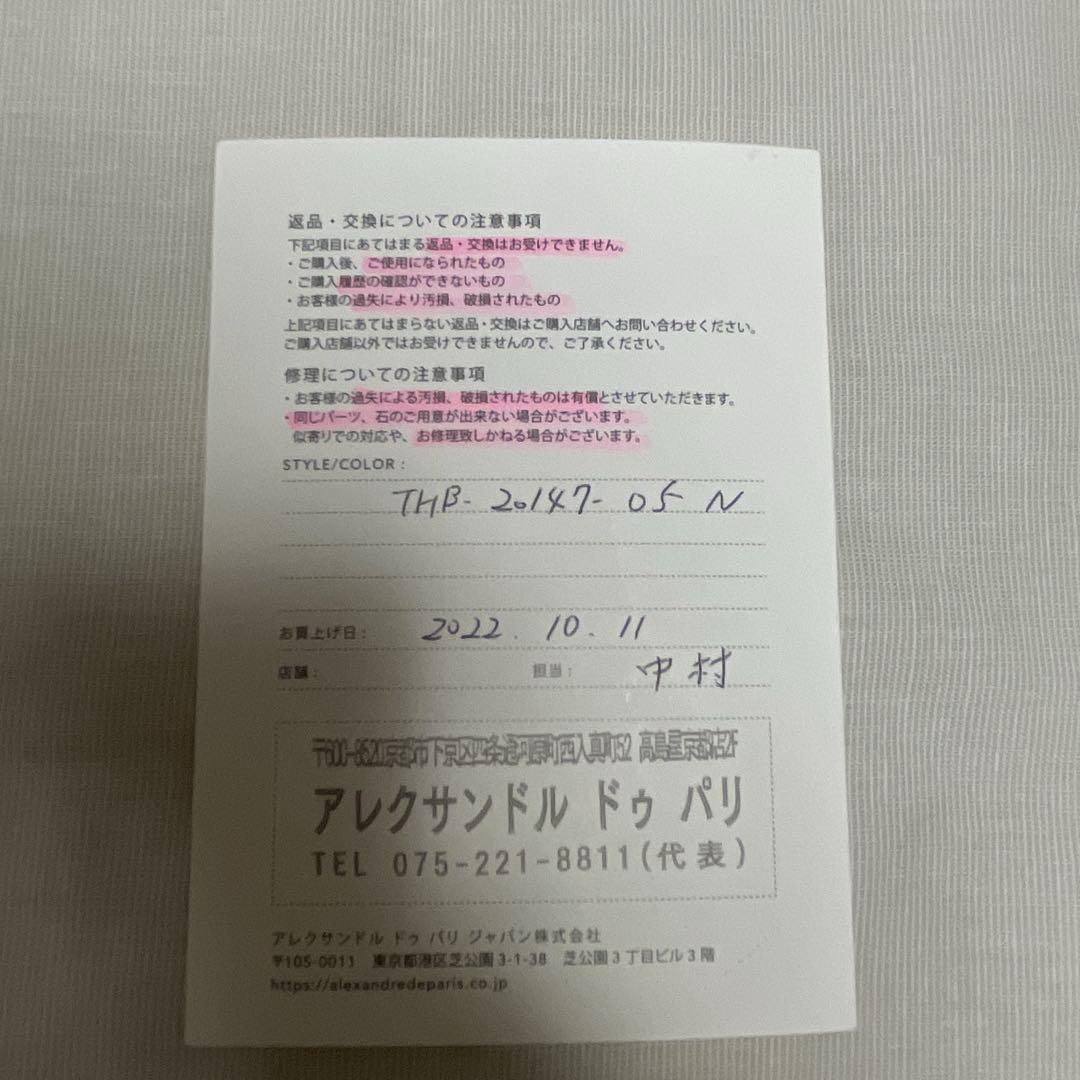 返品・交換についての注意事項
下記項目にあてはまる返品・交換はお受けできません。
・ご購入後、ご使用になられたもの
・ご購入履歴の確認ができないもの
・お客様の過失により汚損、破損されたもの
上記項目にあてはまらない返品・交換はご購入店舗へお問い合わせください。
ご購入店舗以外ではお受けできませんので、ご了承ください。
修理についての注意事項
・お客様の過失による汚損、破損されたものは有償とさせていただきます。
・同じパーツ、石のご用意が出来ない場合がございます。
似寄りでの対応や、お修理致しかねる場合がございます。
STYLE/COLOR :
THB-20147-05 N
お買上げ日: 2022.10.11
店舗: 担当: 中村
京都市下京区四条通河原町西入真町52 高島屋京都店2F
アレクサンドル ドゥ パリ
TEL 075-221-8811(代表)
アレクサンドル ドゥ パリ ジャパン株式会社
〒105-0011 東京都港区芝公園3-1-38 芝公園3丁目ビル3階
https://alexandredeparis.co.jp